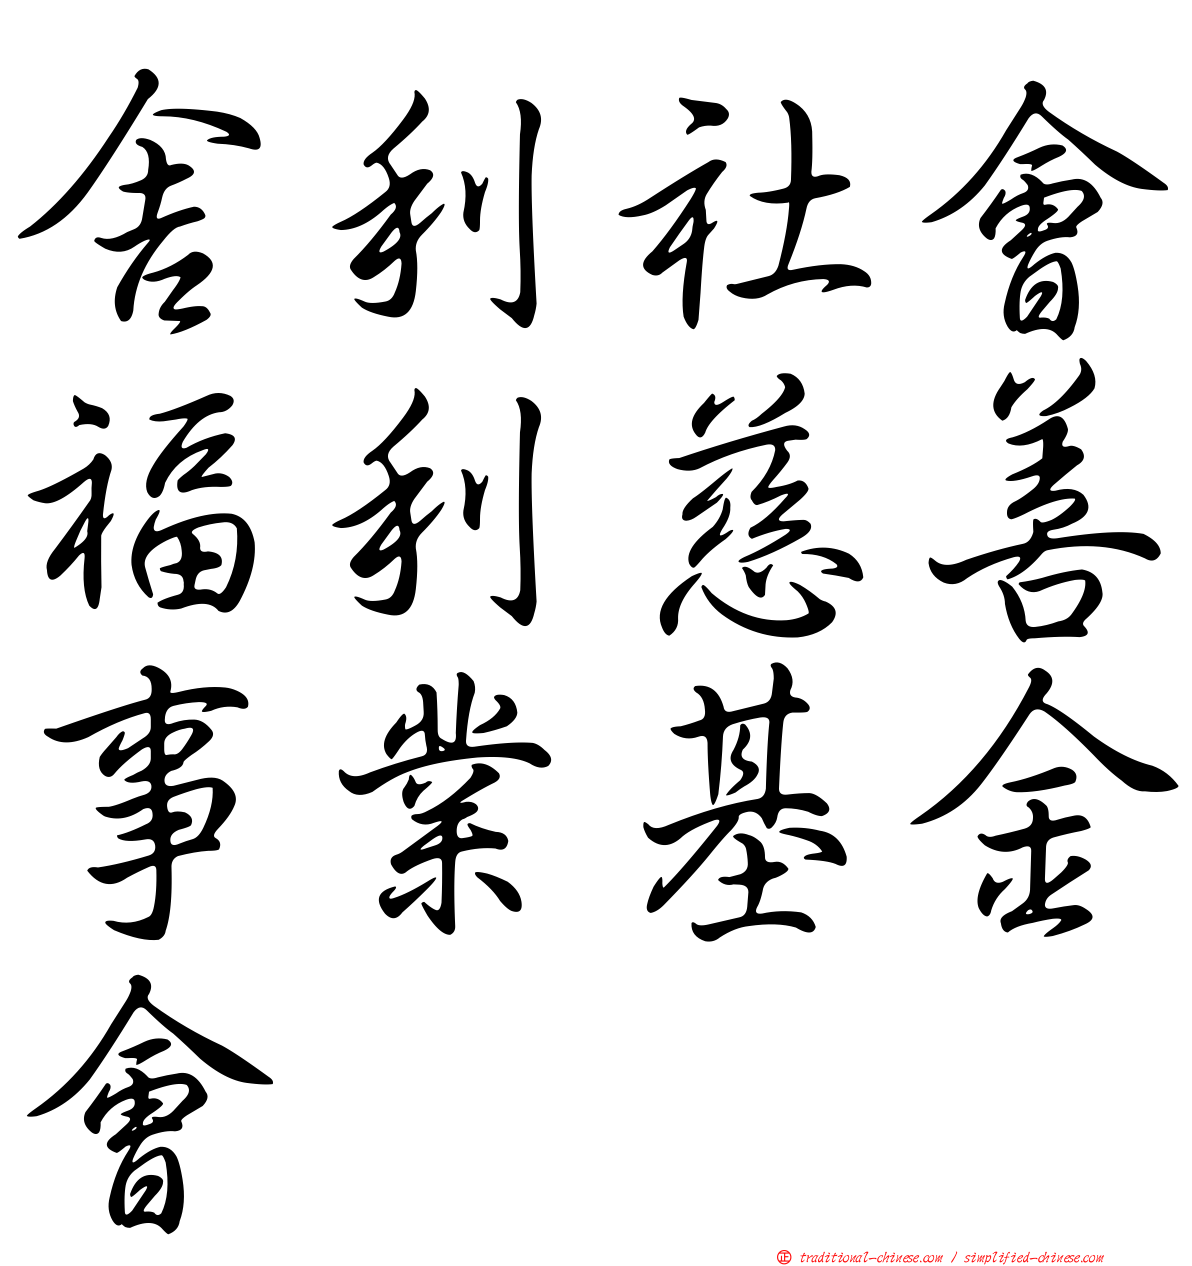 舍利社會
福利慈善
事業基金
會
正 traditional-chinese.com / simplified-chinese.com